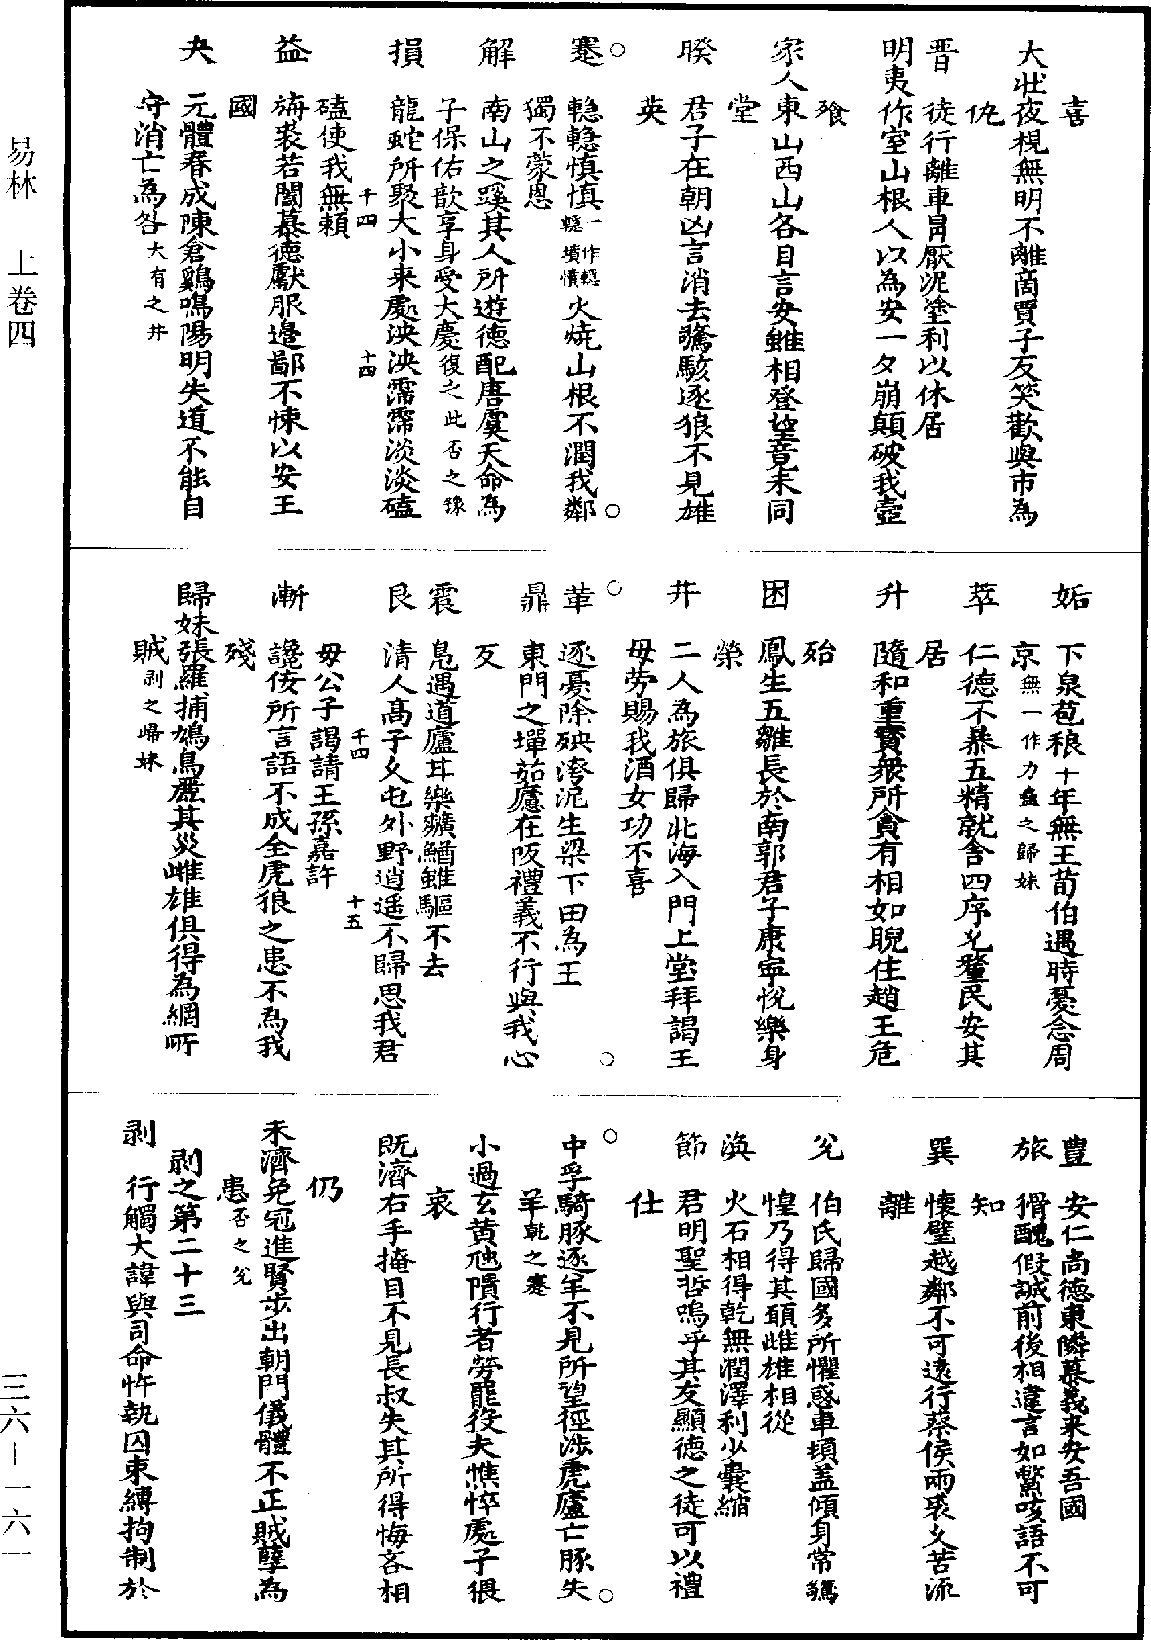 喜
大壯夜視無明不離商賈子友笑歡與市為
仇
晋 徒行離車冐厭泥塗利以休居
明夷作室山根人以為安一夕崩顛破我壺
飱
家人東山西山各自言安雖相登望竟未同
堂
睽 君子在朝凶言消去驚駭逐狼不見雄
英
蹇 慦慦慎慎火燒山根不潤我鄰
獨不蒙恩
解 南山之蹊其人所遊德配唐虞天命為
子保佑歆享身受大慶復之此否之
損 龍蛇所聚大小来處泱泱霈霈淡淡磕
磕使我無賴 十四 十四
益 旃裘若闇慕德獻服邊鄙不悚以安王
國
夬 元體春成陳倉鷄鳴陽明失道不能自
守消亡為咎大有之井
姤 下泉苞稂十年無王荀伯遇時憂念周
京無一作力蠱之歸妹
萃 仁德不暴五精就舍四序允釐民安其
居
升 隨和重寳衆所貪有相如睨住趙王危
殆
困 鳳生五雛長於南郭君子康寧悅樂身
榮
井 二人為旅俱歸北海入門上堂拜謁王
母勞賜我酒女功不喜
革 逐憂除殃洿泥生梁下田為王
鼎 東門之墠茹藘在阪禮義不行與我心
反
震 鳧遇道廬耳樂曠鰌雖驅不去
艮 清人高子久屯外野逍遥不歸思我君
母公子謁請王孫嘉許 十四 十五
漸 讒佞所言語不成全虎狼之患不為我
殘
歸妹張羅捕鳩鳥麗其災雌雄俱得為網所
賊剥之歸妹
豊 安仁尚德東隣慕義来安吾國
旅 猾醜假誠前後相違言如鱉咳語不可
知
巽 懷璧越鄰不可遠行蔡侯兩裘久苦流
離
兌 伯氏歸國多所懼惑車頃盖傾身常驚
惶乃得其願雌雄相從
渙 火石相得乾無潤澤利少囊縮
節 君明聖哲嗚乎其友顯德之徒可以禮
仕
中孚騎豚逐羊不見所望徑涉虎廬亡豚失
羊乾之蹇
小過玄黄虺隤行者勞罷役夫憔悴處子畏
哀
既濟右手掩目不見長叔失其所得悔吝相
仍
未濟免冠進賢步出朝門儀體不正賊孽為
患否之兌
剥之第二十三
剥 行觸大諱與司命忤執囚束縛拘制於
易林 上卷四
三六－一六一